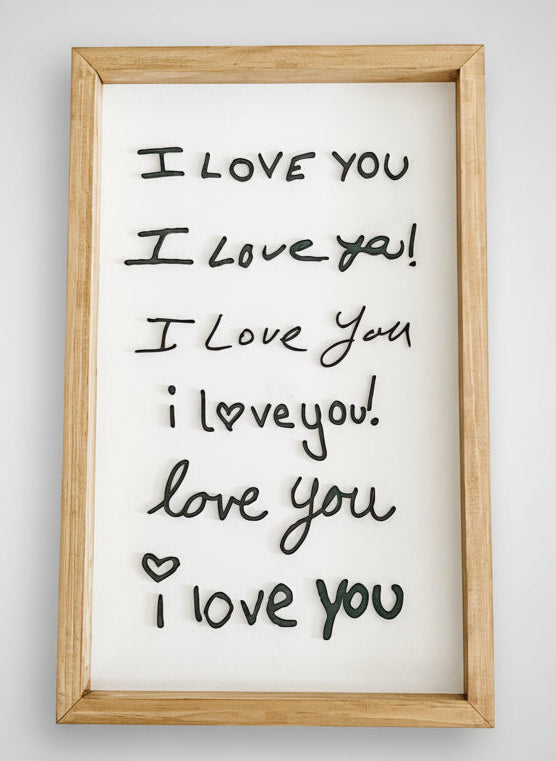 I LOVE YOU
I Love ya!
I Love You
i love you!
love you
i love you